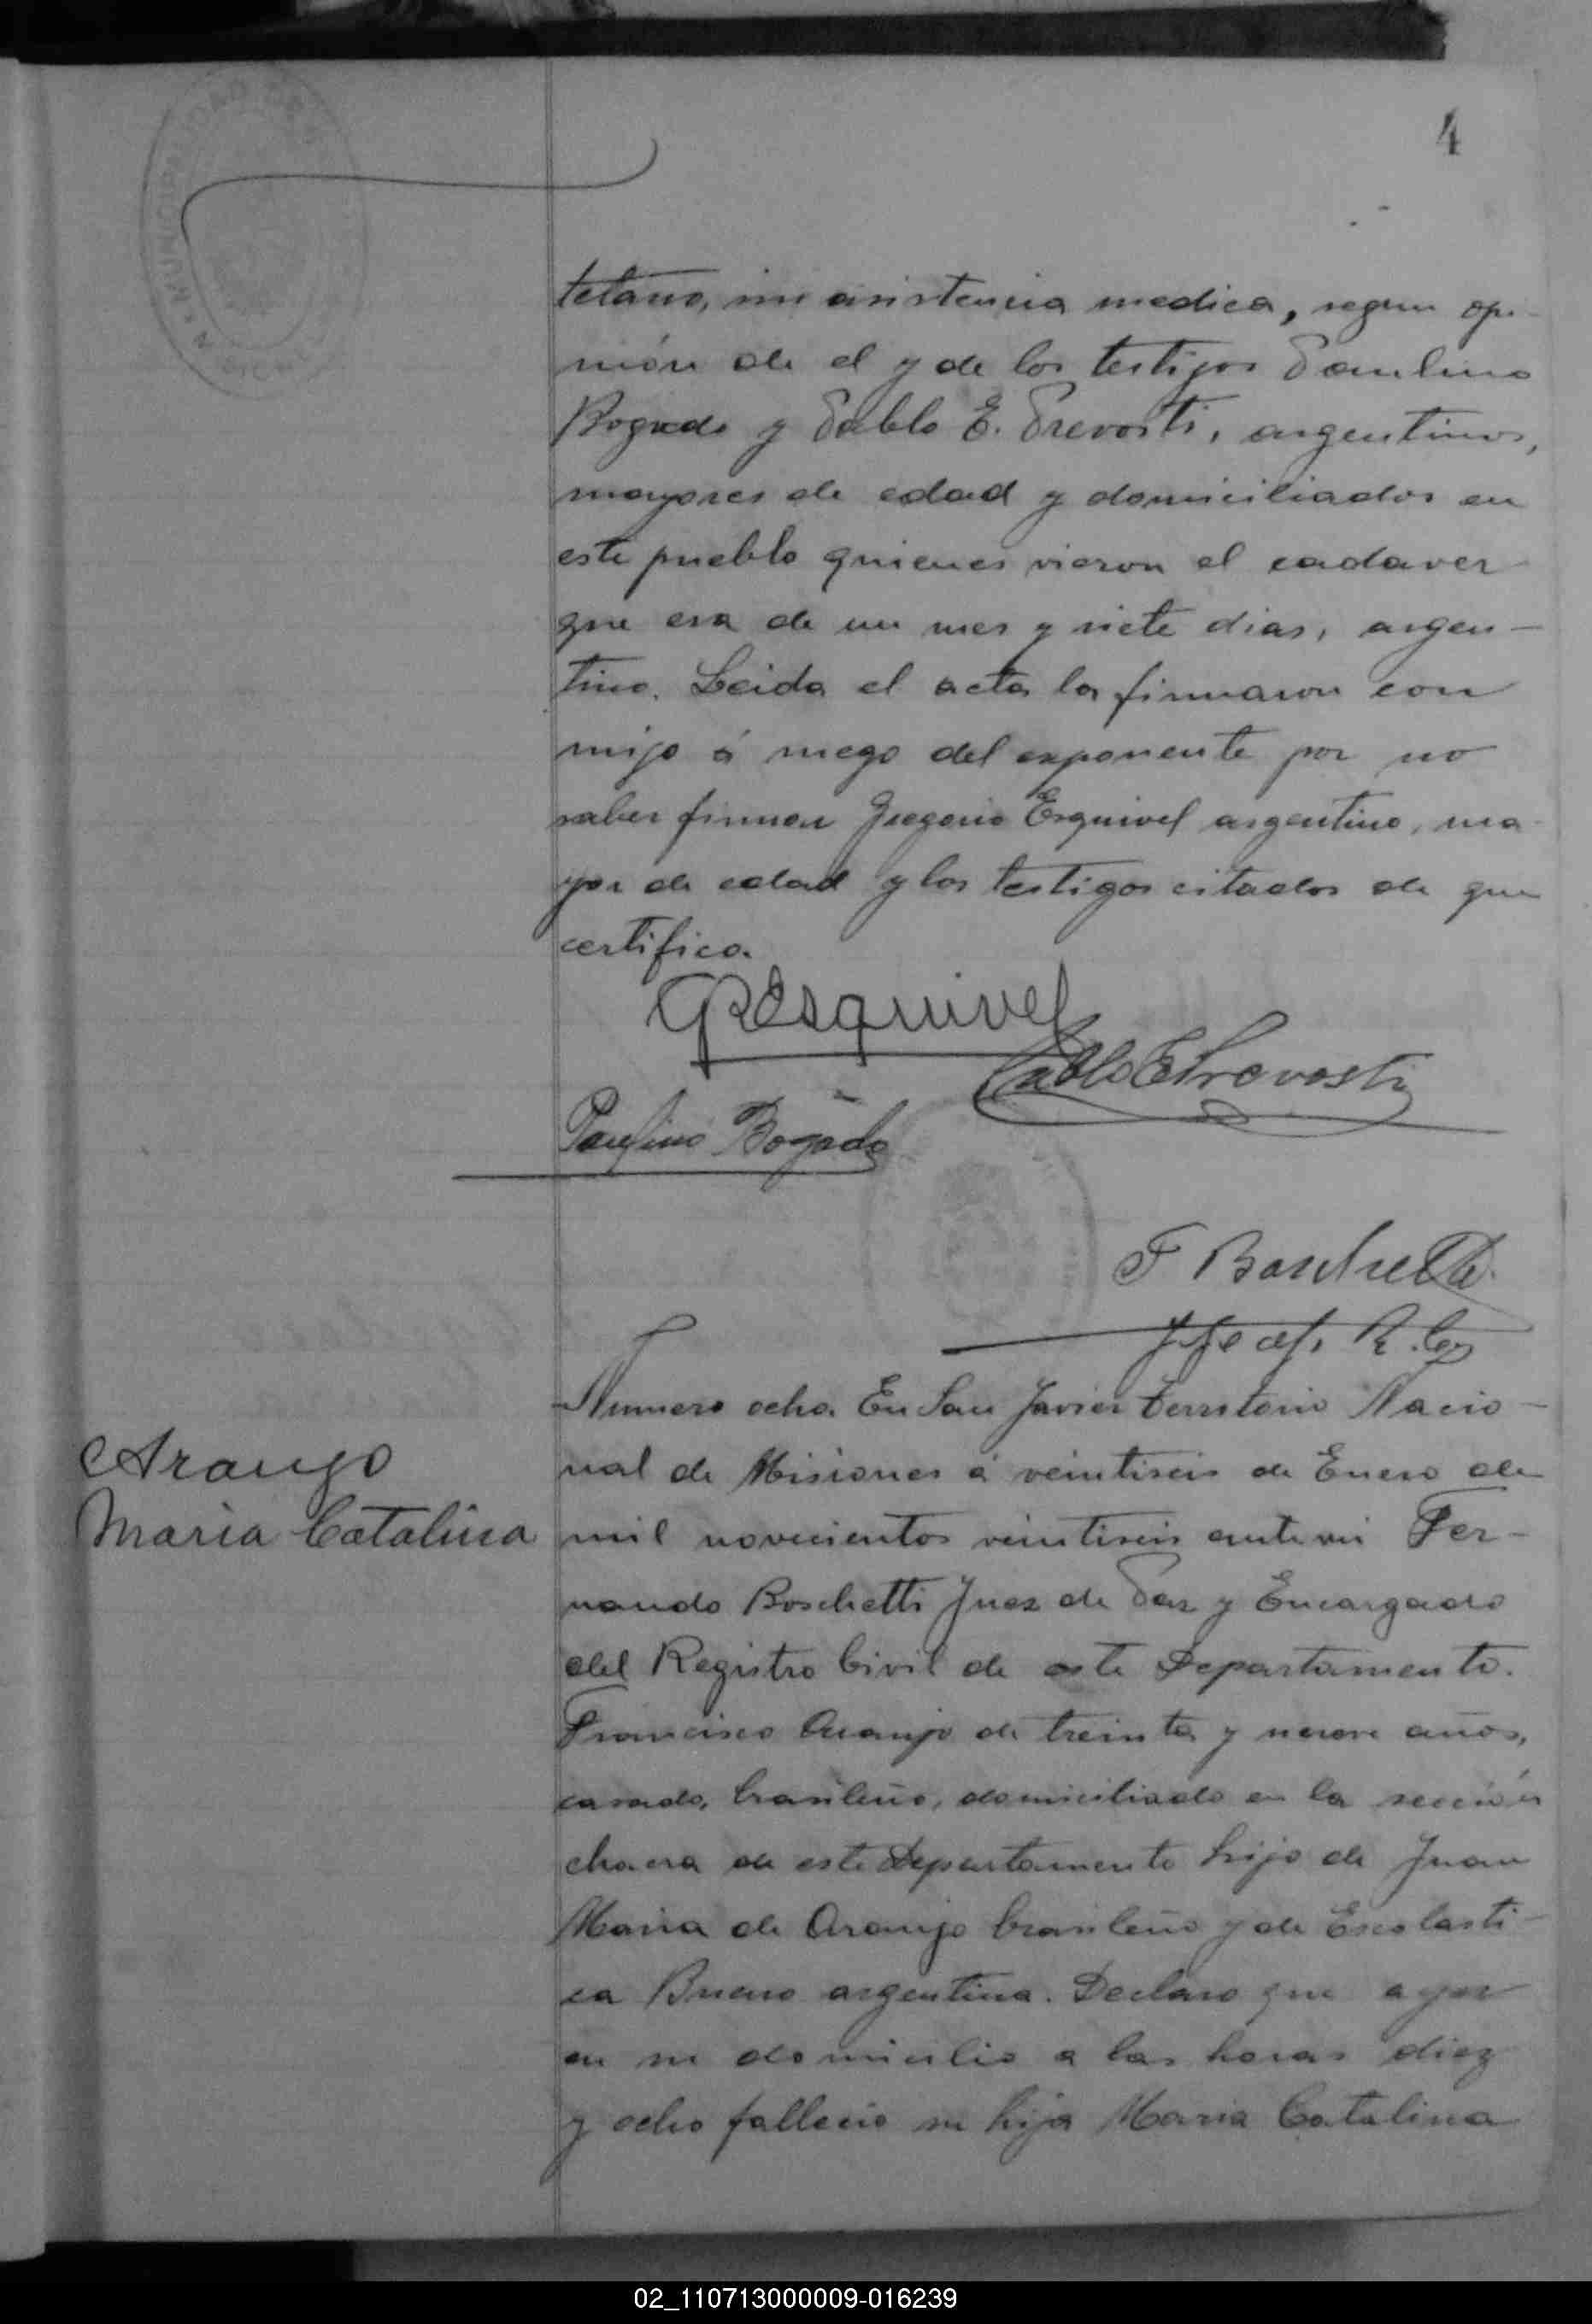 4
tetano, sin asistencia medica, segun opi-
nión de el y de los testigos Paulino
Bogado y Pablo E. Prevosti, argentinos,
mayores de edad y domiciliados en
este pueblo quienes vieron el cadaver
que era de un mes y siete dias, argen-
tino. Leida el acta la firmaron con
migo á ruego del exponente por no
saber firmar Gregorio Esquivel argentino, ma-
yor de edad y los testigos citados de que
certifico.
GREsquivel
Pablo E Prevosti
Paulino Bogado
F Boschetti
Jefe R. C.
Numero ocho. En San Javier Territorio Nacio-
Araujo
nal de Misiones á veintiseis de Enero de
Maria Catalina
mil novecientos veintiseis ante mi Fer-
nando Boschetti Juez de Paz y Encargado
del Registro Civil de este Departamento.
Francisco Araujo de treinta y nueve años,
casado, brasileño, domiciliado en la sección
chacra de este Departamento hijo de Juan
Maria de Araujo brasileño y de Escolasti-
ca Bueno argentina. Declaro que ayer
en su domicilio a las horas diez
y ocho fallecio su hija Maria Catalina
02_110713000009-016239